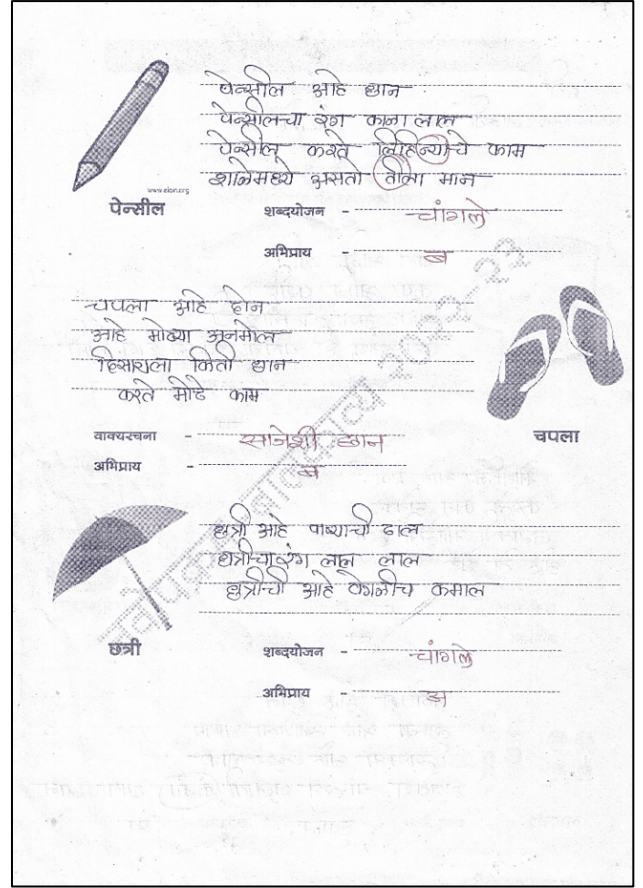 पेन्सील आहे छान
पेन्सीलचा रंग काळा लाल
पेन्सील करते लिहिन्याचे काम
शाळेमध्ये असतो तीला मान
www.elon.org
पेन्सील
शब्दयोजन - चांगले
अभिप्राय - ब
चपला आहे दोन
आहे मोठ्या अनमोल
दिसायला किती छान
करते मोठे काम
चपला
वाक्यरचना - साजेशी छान
अभिप्राय - ब
छत्री आहे पाण्याची ढाल
छत्रीचा रंग लाल लाल
छत्रीची आहे वेगळीच कमाल
छत्री
शब्दयोजन - चांगले
अभिप्राय - अ
नवोपक्रम बालकाव्य २०२२-२३